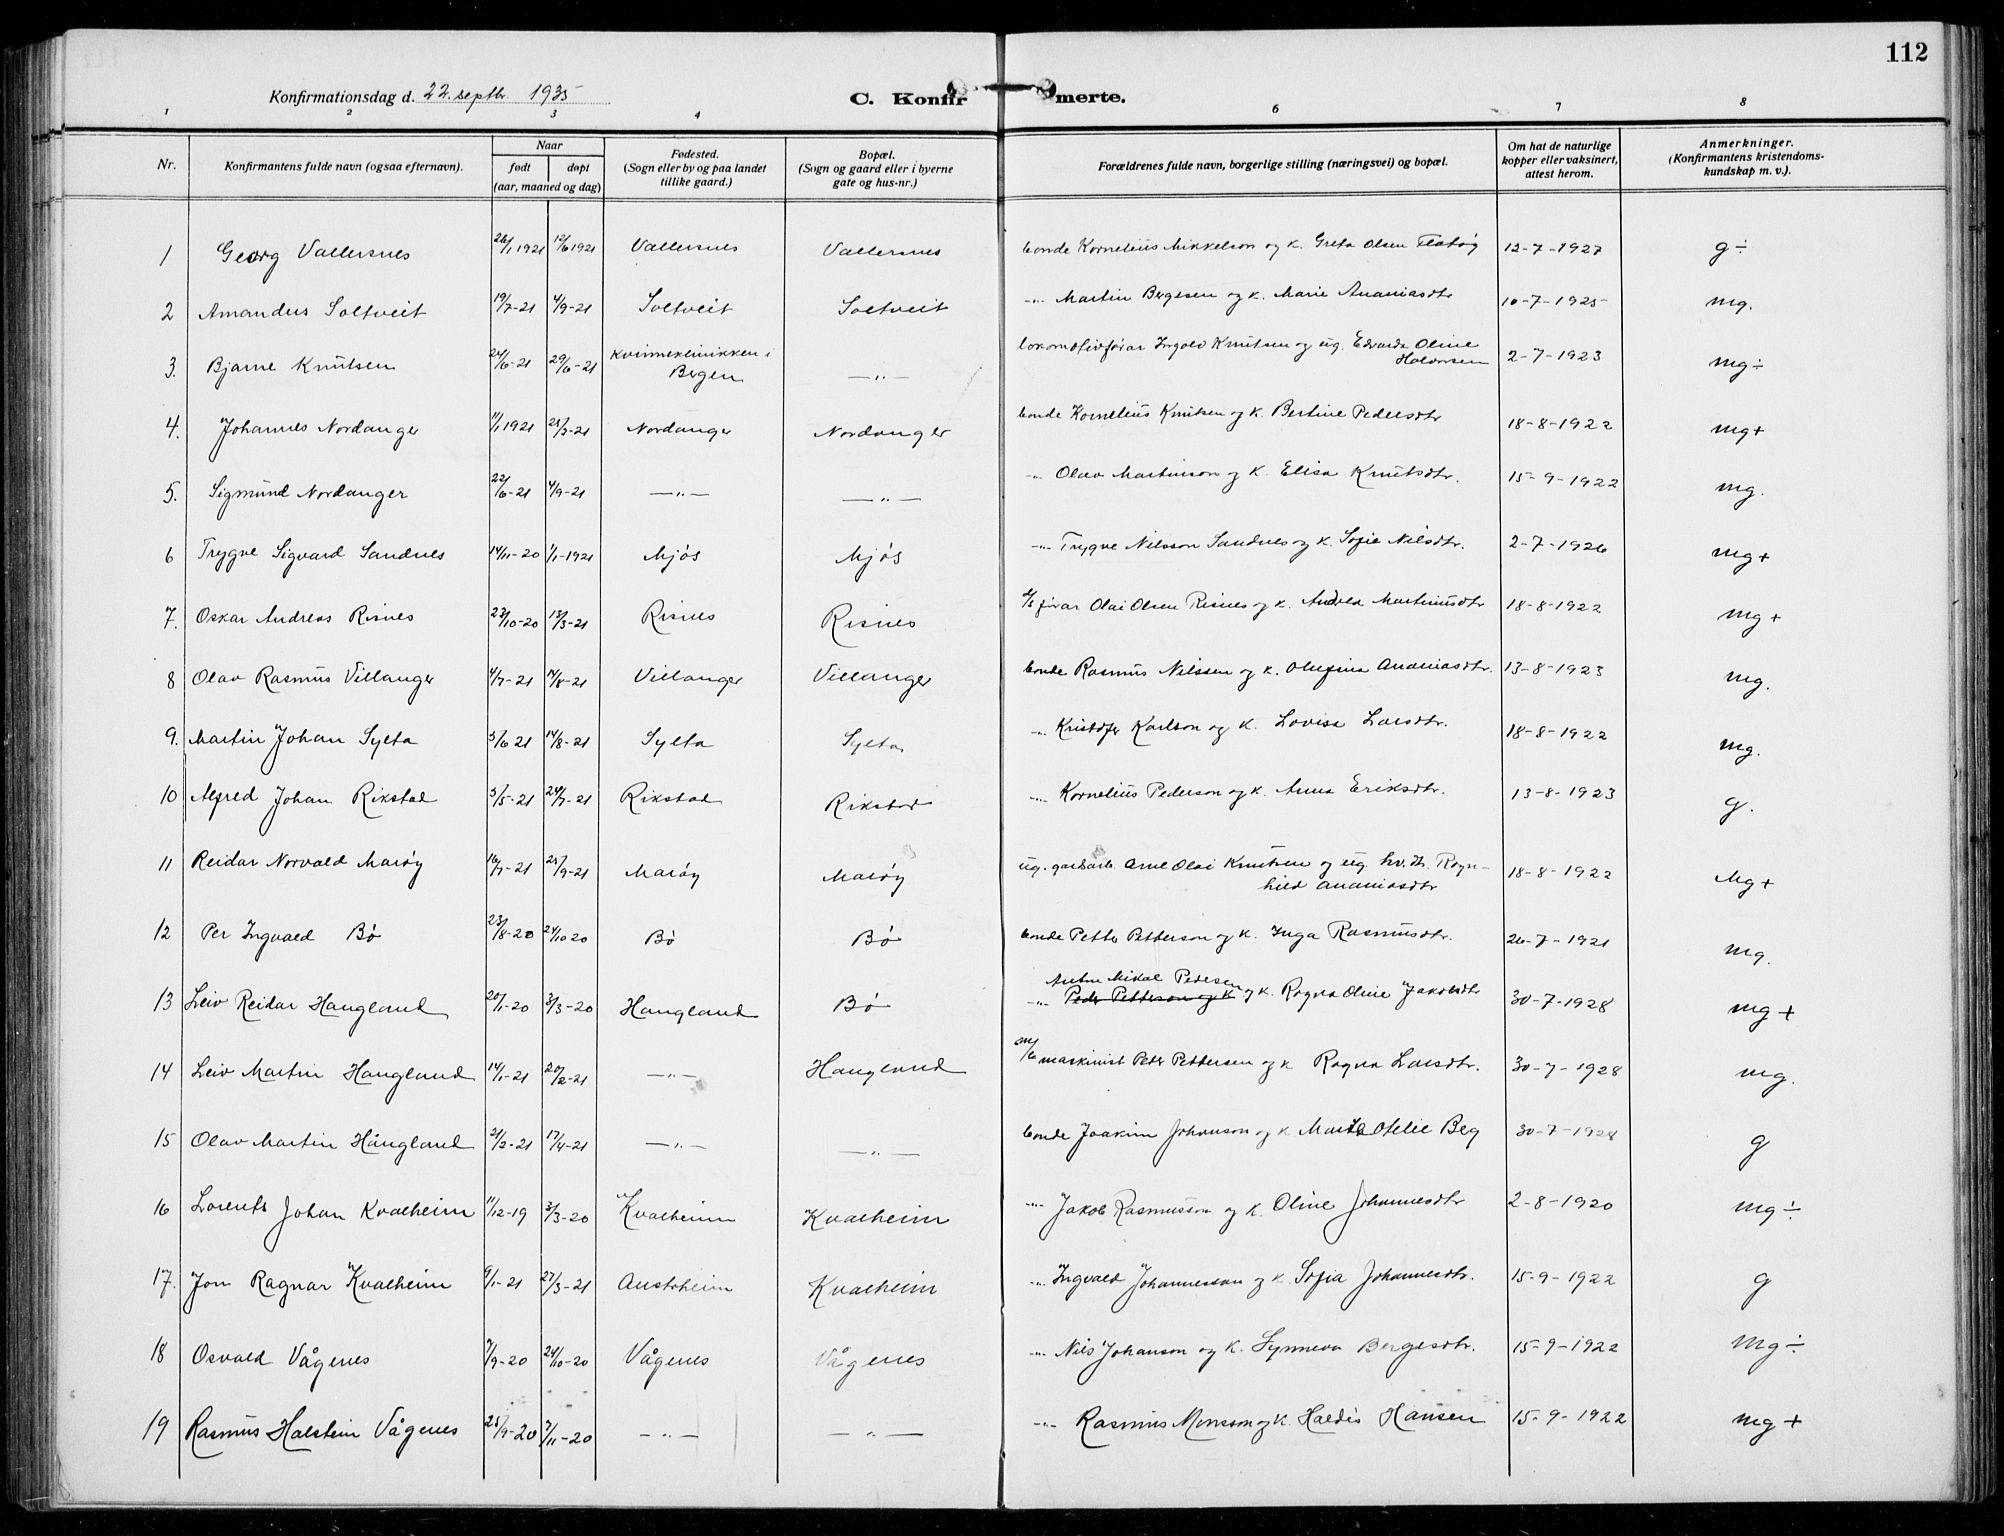 112
Konfirmationsdag d. 22. septbr. 1935
C. Konfirmerte.
1 2 3 4 5 6 7 8
Nr. | Konfirmantens fulde navn (ogsaa efternavn). | Naar født døpt (aar, maaned og dag) | Fødested. (Sogn eller by og paa landet tillike gaard.) | Bopæl. (Sogn og gaard eller i byerne gate og hus-nr.) | Forældrenes fulde navn, borgerlige stilling (næringsvei) og bopæl. | Om hat de naturlige kopper eller vaksinert, attest herom. | Anmerkninger. (Konfirmantens kristendomskundskap m. v.).
1 Georg Vallersnes 26/1 1921 12/6 1921 Vallersnes Vallersnes bonde Kornelius Mikkelson og k. Greta Olsen Flatøy 12-7-1927 g ÷
2 Amandus Soltveit 19/7-21 4/9-21 Soltveit Soltveit -"- Martin Bergesen og k. Marie Ananiasdtr 10-7-1925 mg.
3. Bjarne Knutsen 24/6-21 29/6-21 Kvinneklinikken i Bergen —"— lokomotivførar Ingolv Knutsen og ug. Edvarda Oline Halvorsen 2-7-1923 mg ÷
4. Johannes Nordanger 11/1 1921 28/3-21 Nordanger Nordanger bonde Kornelius Knutsen og k. Bertine Pedersdtr 18-8-1922 mg +
5. Sigmund Nordanger 22/6-21 4/9-21 —"— —"— -"- Olav Martinson og k. Elisa Knutsdtr. 15-9-1922 mg.
6 Trygve Sigvard Sandnes 14/11-20 1/1-1921 Mjøs Mjøs -"- Trygve Nilsson Sandnes og k. Sofie Nilsdtr. 2-7-1926 mg +
7. Oskar Andreas Risnes 23/10-20 13/3-21 Risnes Risnes d/s førar Olai Olsen Risnes og k. Andrea Martinusdtr 18-8-1922 mg +
8 Olav Rasmus Villanger 4/7-21 14/8-21 Villanger Villanger bonde Rasmus Nilssen og k. Olufina Ananiasdtr. 13-8-1923 mg.
9. Martin Johan Sylta 3/6 21 14/8-21 Sylta Sylta -"- Kristofer Karlson og k. Lovisa Larsdtr. 18-8-1922 mg.
10 Alfred Johan Rikstad 3/5-21 24/7-21 Rikstad Rikstad -"- Kornelius Pederson og k. Anna Eriksdtr. 13-8-1923 g.
11 Reidar Norvald Marøy 16/7-21 25/9-21 Marøy Marøy ug. gardsarb. Arne Olai Knutsen og ug. hv. dtr. Ragnhild Ananiasdtr 18-8-1922 Mg +
12 Per Ingvald Bø 23/8-20 24/10 20 Bø Bø bonde Petter Petterson og k. Inga Rasmusdtr. 26-7-1921 mg.
13 Leiv Reidar Haugland 20/1-20 3/3-20 Haugland Bø -"- Anton Mikal Pedersen ~~Peder Petterson og k~~ og k. Ragna Oline Jakobsdtr 30-7-1928 mg +
14 Leiv Martin Haugland 14/1-21 20/2-21 —"— Haugland m/b maskinist Peder Pettersen og k Ragna Larsdtr. 30-7-1928 mg.
15 Olav Martin Haugland 21/2-21 17/4-21 —"— —"— bonde Joakim Johanson og k Marta Otelie Beg 30-7-1928 g
16 Lorents Johan Kvalheim 11/12-19 3/3-20 Kvalheim Kvalheim -"- Jakob Rasmusson og k. Oline Johannesdtr 2-8-1920 mg ÷
17. Jon Ragnar Kvalheim 9/1-21 27/3-21 Austrheim Kvalheim -"- Ingvald Johannesson og k. Sofia Johannesdtr. 15-9-1922 g
18 Osvald Vågenes 7/9-20 24/10-20 Vågenes Vågenes -"- Nils Johanson og k. Synneva Bergesdtr. 15-9-1922 mg ÷
19 Rasmus Halstein Vågenes 25/9-20 7/11-20 —"— —"— -"- Rasmus Monsson og k. Haldis Hansen 15-9-1922 mg +